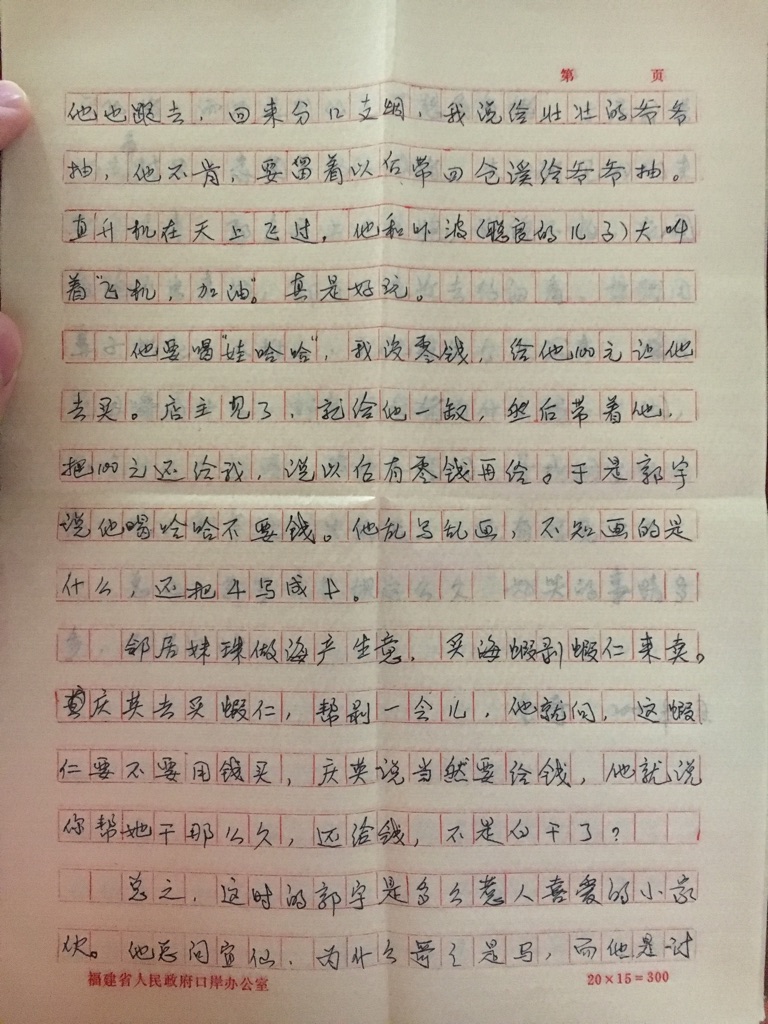 第 页
他也跟去,回来分12支烟,我说给壮壮的爷爷
抽,他不肯,要留着以后带回仓溪给爷爷抽。
直升机在天上飞过,他和吓波(聪良的儿子)大叫
着"飞机,加油"。真是好玩。
他要喝"娃哈哈",我没零钱,给他100元让他
去买。店主见了,就给他一瓶,然后带着他,
把100元还给我,说以后有零钱再给。于是郭宇
说他喝哈哈不要钱。他乱写乱画,不知画的是
什么,还把4写成
邻居妹珠做海产生意,买海蝦剥蝦仁来卖。
庆英去买蝦仁,帮剥一会儿,他就问,这蝦
仁要不要用钱买,庆英说当然要给钱,他就说
你帮她干那么久,还给钱,不是白干了?
总之,这时的郭宇是多么惹人喜爱的小家
伙。他总问宜仙,为什么哥哥是马,而他是
福建省人民政府口岸办公室 20×15=300